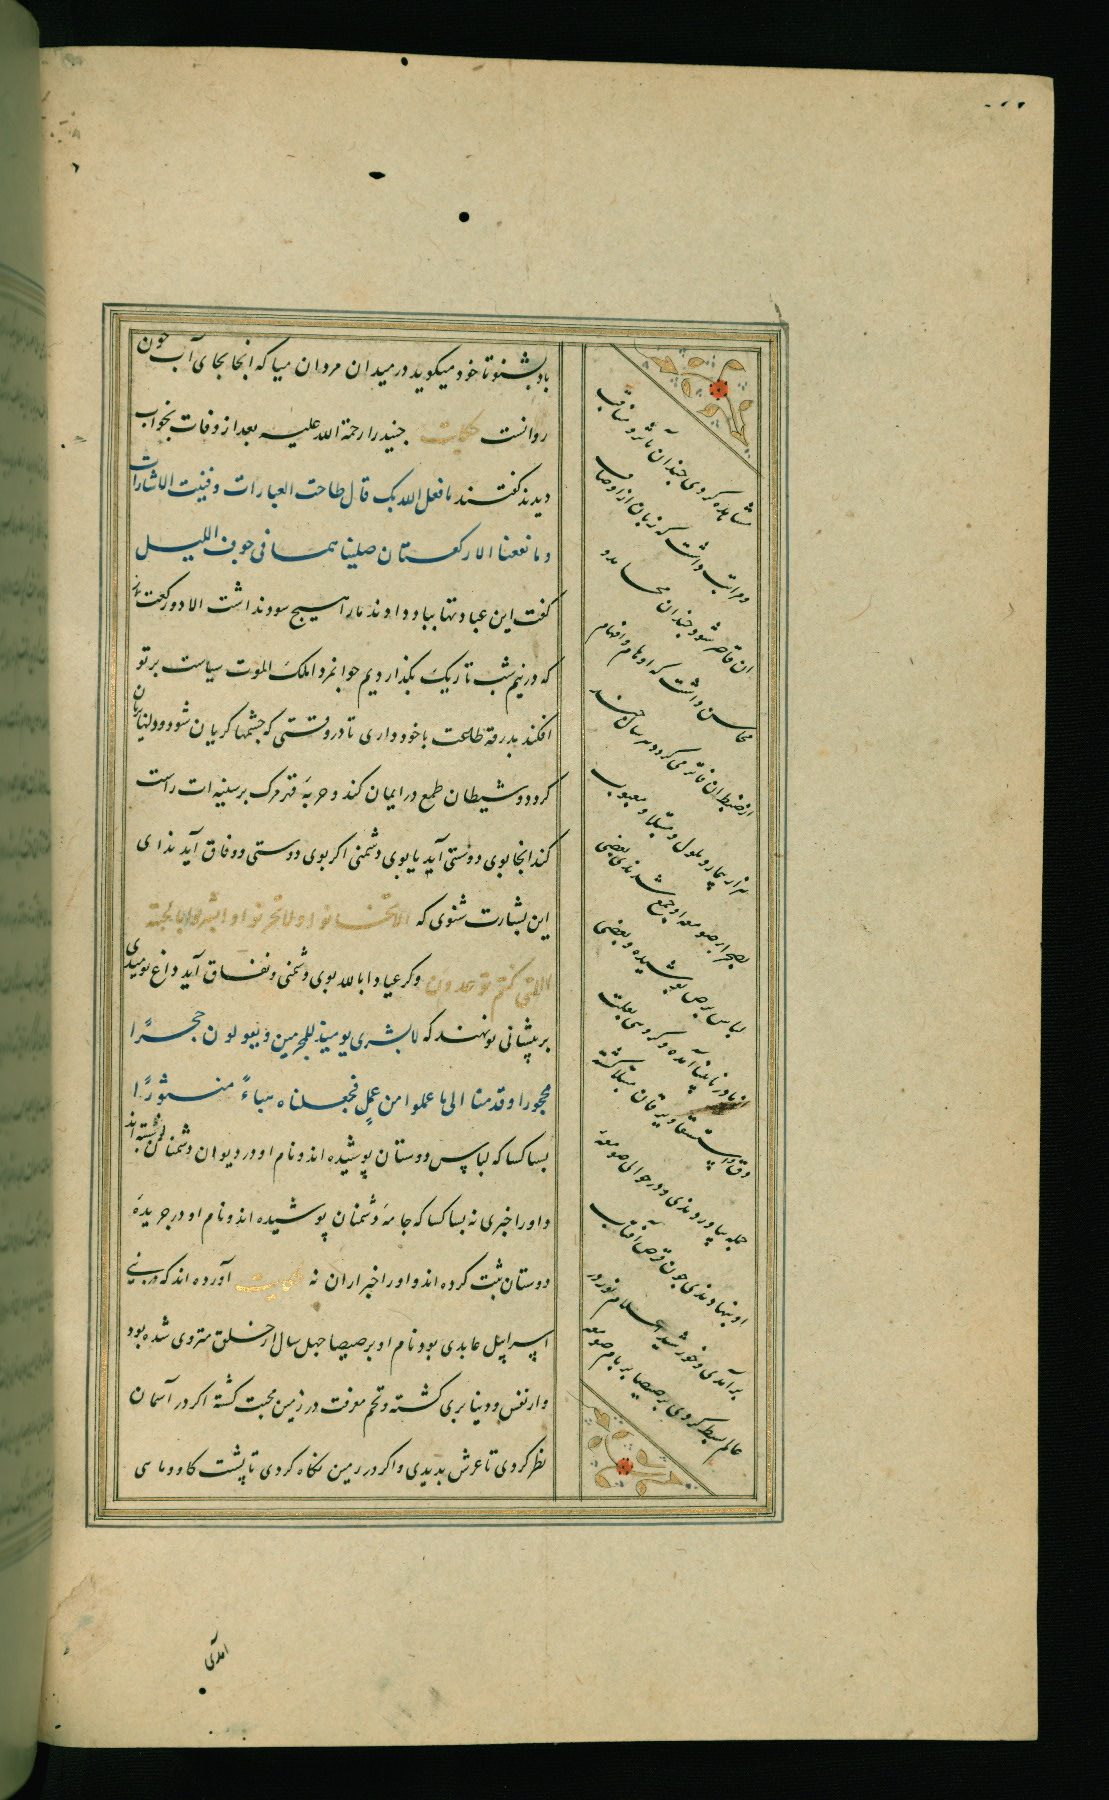 باد بشنو تا خود میکوید در میدان مردان میا که انجا بجای آب خون
روانست حکایت جنید را رحمة الله علیه بعد از وفات بخواب
دیدند کفتند ما فعل الله بک قال طاحت العبارات و فنیت الاشارات
و ما نفعنا الا رکعتان صلیناهما فی جوف اللیل
کفت این عبادتها بباد دادند مارا هیچ سود نداشت الا دو رکعت نماز
که در نیم شب تاریک بکذاردیم جوانمردا ملک الموت سیاست بر تو
افکند بدرقه طاعت با خود داری تا در وقتی که چشمها کریان شود و دلها بریان
کردد و شیطان طمع در ایمان کند و حربهٔ قهر مرک بر سینه ات راست
کند انجا بوی دوستی آید یا بوی دشمنی اکر بوی دوستی و وفاق آید ندای
این بشارت شنوی که الا تخافوا و لا تحزنوا و ابشروا بالجنة
التی کنتم توعدون و کر عیاذا بالله بوی دشمنی و نفاق آید داغ نومیدی
بر پیشانی تو نهند که لا بشری یومیذ للمجرمین و یقولون حجرًا
محجورا و قدمنا الی ما عملوا من عمل فجعلناه هباءً منثورًا
بسا کسا که لباس دوستان پوشیده اند و نام او در دیوان دشمنان نبشته اند
و او را خبری نه بسا کسا که جامهٔ دشمنان پوشیده اند و نام او در جریدهٔ
دوستان ثبت کرده اند و او را خبر از ان نه حکایت آورده اند که در بنی
اسراییل عابدی بود نام او برصیصا چهل سال از خلق منزوی شده بود
و از نفس و دنیا بری کشته و تخم معرفت در زمین محبت کشته اکر در آسمان
نظر کردی تا عرش بدیدی و اکر در زمین نکاه کردی تا پشت کاو و ماهی
مشاهده کردی چندان مآثر و مناقب
و مراتب داشت که زبان از اوصاف
ان قاصر شود و چندان محامد و
محاسن داشت که اوهام و افهام
از ضبط ان فاتر می کردد هر سال چند
هزار بیمار و ملول و مبتلا و معیوب
بصحرا بر صومعه او جمع شدندی بعضی
لباس برص پوشیده و بعضی
از مادر نابینا آمده و کروهی بعلت
دق و استسقا و یرقان مبتلا کشته
جمله بیاوردندی و در حوالی صومعهٔ
او بنهادندی چون قرص آفتاب
برآمدی و خورشید اعلام نور در
عالم بسط کردی برصیصا بر بام صومعه
امدی